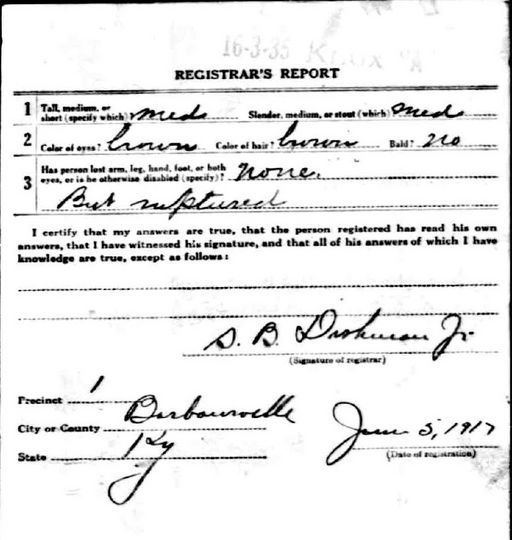 16-3-35 Knox
REGISTRAR'S REPORT
1 Tall, medium, or short (specify which) med Slender, medium, or stout (which) med
2 Color of eyes? brown Color of hair? brown Bald? no
3 Has person lost arm, leg, hand, foot, or both eyes, or is he otherwise disabled (specify)? none.
But ruptured
I certify that my answers are true, that the person registered has read his own
answers, that I have witnessed his signature, and that all of his answers of which I have
knowledge are true, except as follows:
S. B. Dishman Jr.
(Signature of registrar)
Precinct 1
City or County Barbourville
State Ky
June 5, 1917
(Date of registration)